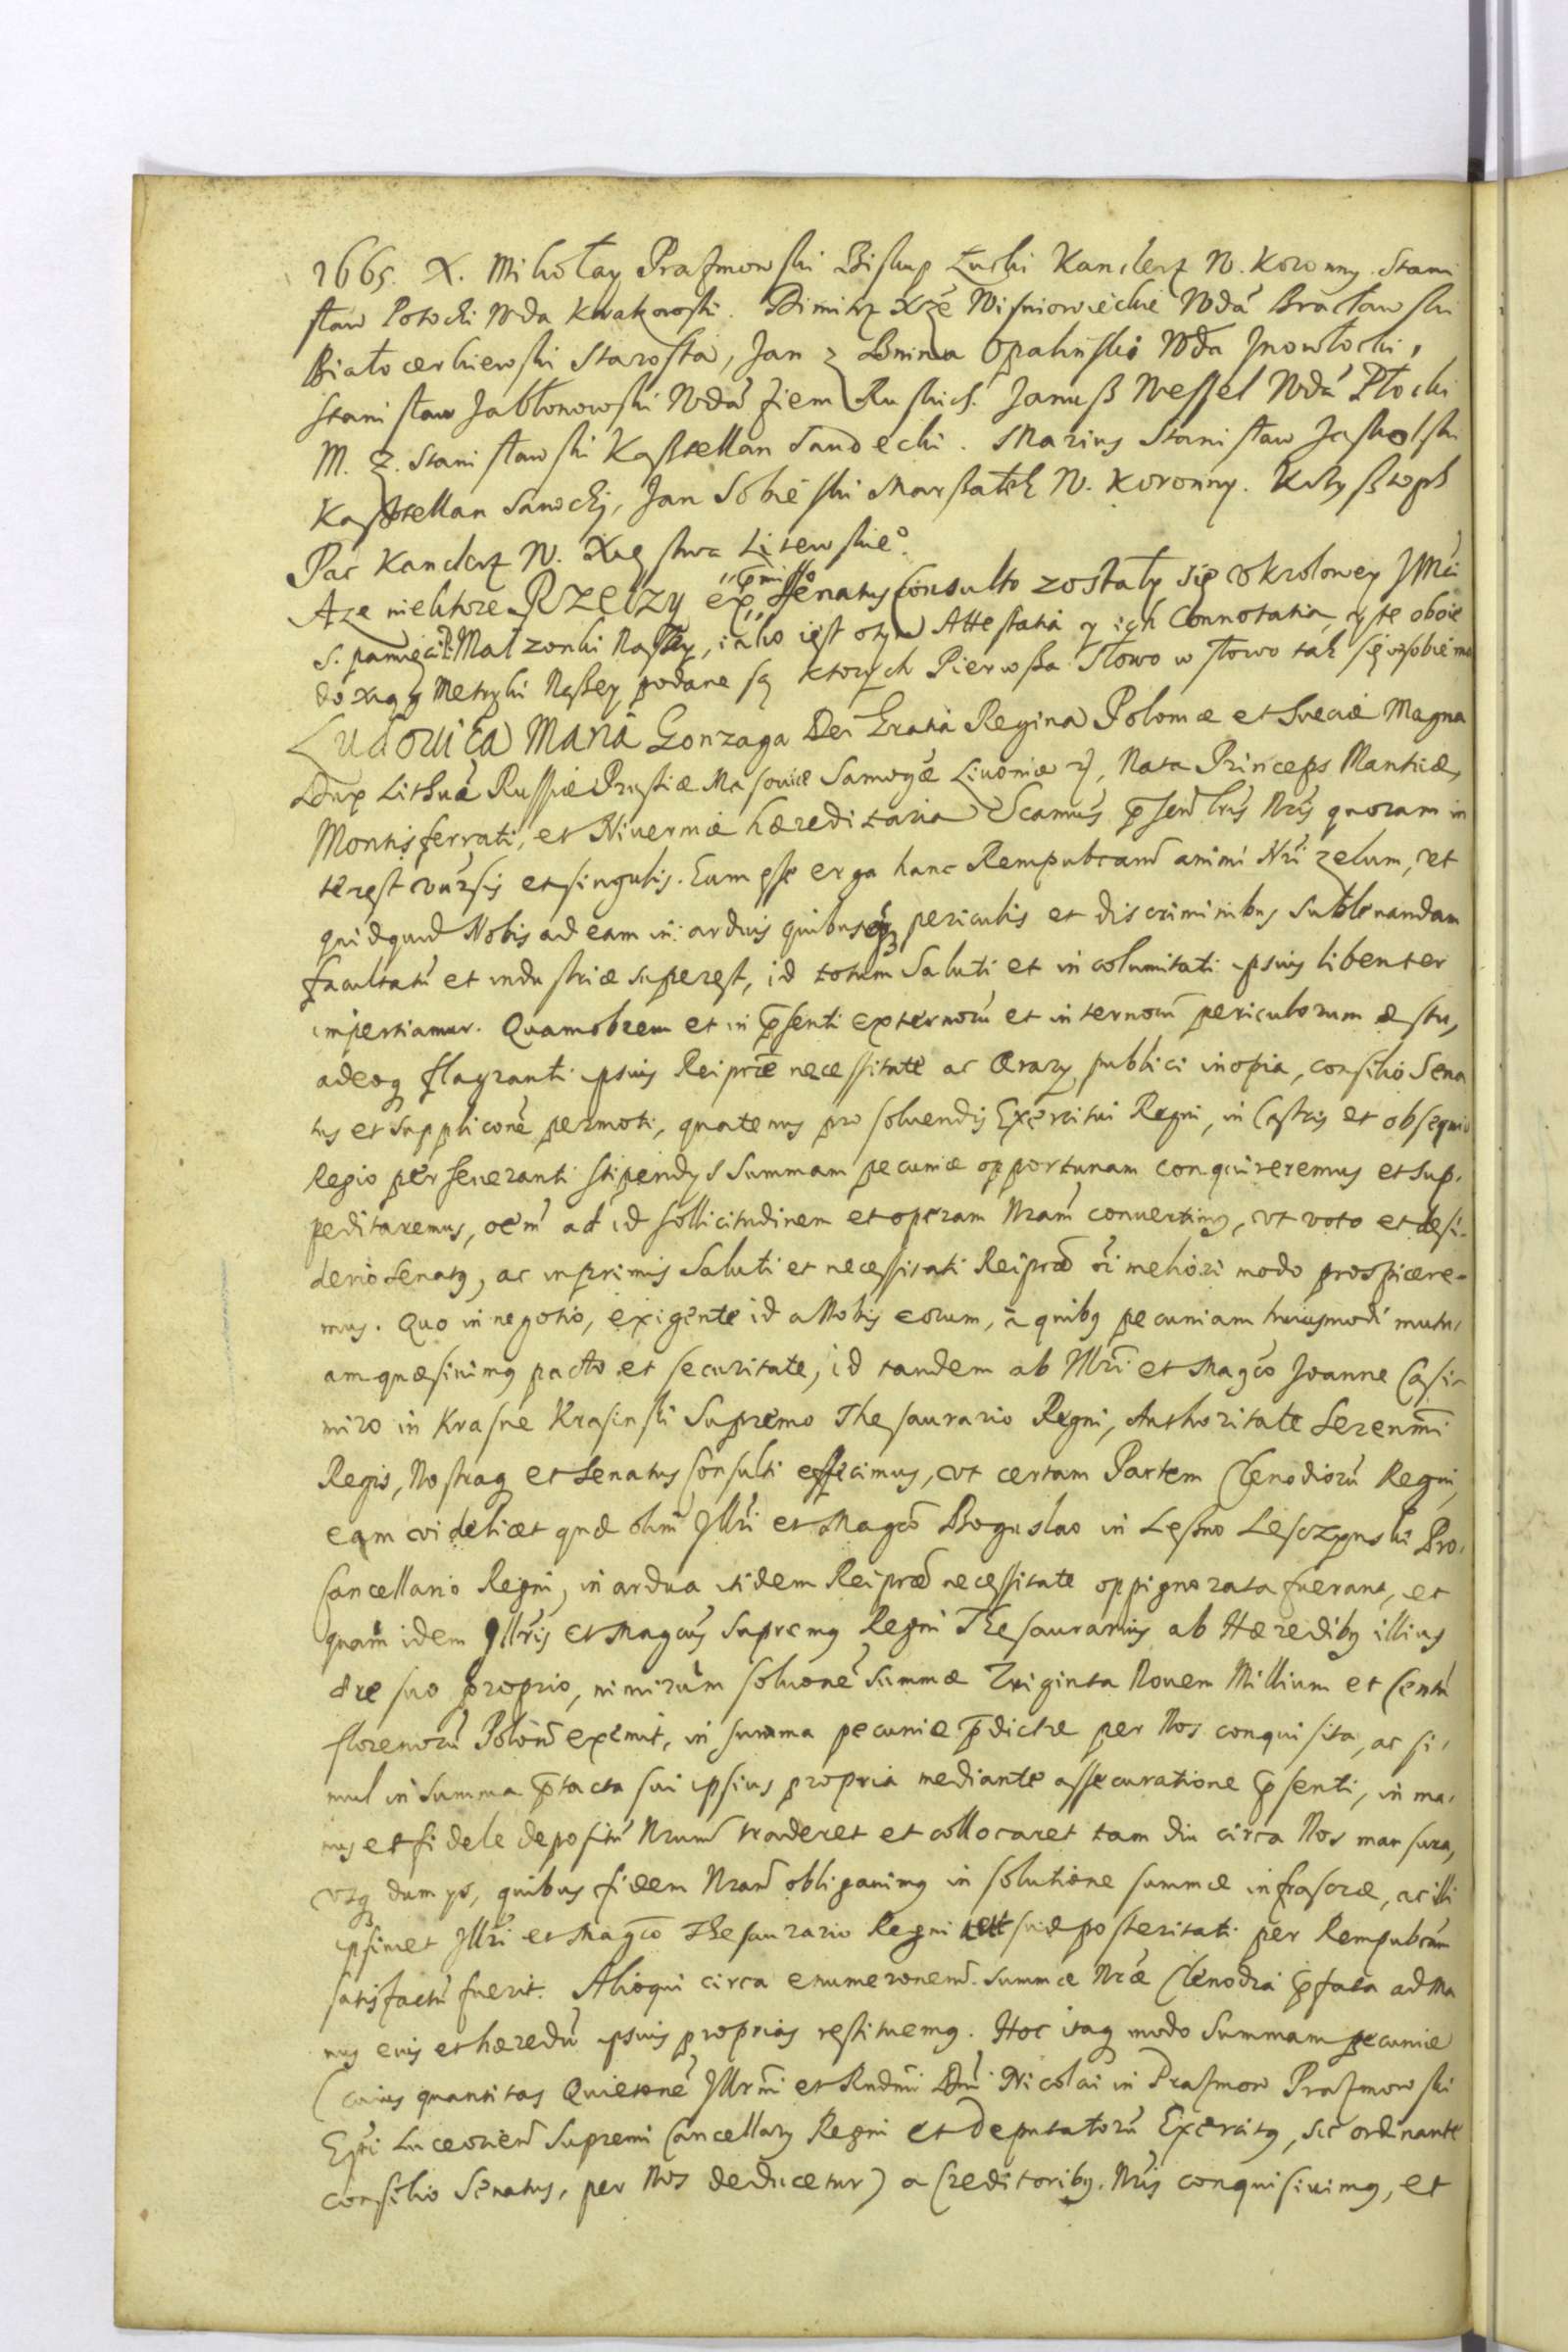 1665. X. Mikołay Prażmowski Biskup Łucki Kanclerz W. Koronny. Stani
sław Potocki Wda Krakowski. Dimitr Xże Wiśniowieckie Wda Bracławski
Białocerkiewski Starosta, Jan z Bnina Opaliński Wda Inowłocki,
Stanisław Jabłonowski Wda ziem Ruskich. Janusz Wessel Wda Płocki
M. Z. Stanisławski Kasztellan Sandecki. Marius Stanisław Jaskolski
Kasztellan Sanocki, Jan Sobieski Marszałek W. Koronny. Krzysztoph
Pac Kanclerz W. Xięstwa Litewskie°.
A ze niektore Rzeczy ex pmisso Senatus Consulto zostały się v krolowey JMci
S. pamięci P. Małzonki Naszey, iako iest otym Attestatia y ich Connotatia, y te oboie
do xiąg Metryki Naszey podane są ktorych Pierwsza Słowo w słowo tak się w sobie ma
Ludouica Maria Gonzaga Dei Gratia Regina Poloniæ et Sueciæ Magna
Dux Lithuæ Russiæ Prussiæ Masouiæ Samogæ Liuoniæ &, Nata Princeps Mantuæ,
Montisferrati, et Niuerniæ hæreditaria Scamus pſent lris Nris quorum in
terest vnrsis et singulis. Eum esse erga hanc Rempubcam animi Nri zelum, vt
quidquid Nobis ad eam in arduis quibusq periculis et discriminibus subleuandam
facultatu et industriæ superest, id totum Saluti et incolumitati ipsius libenter
impertiamur. Quamobrem et in psenti externoru et internoru periculorum æstu,
adeoq flagranti ipsius Reiprce necessitate ac Ærary publici inopia, consilio Sena
tus et supplicone permoti, quatenus pro soluendis Exercitui Regni, in Castris et obsequio
Regio perseueranti stipendys summam pecuniæ opportunam conquireremus et sup-
peditaremus, oem ad id sollicitudinem et operam Nram conuertimus, vt voto et desi-
derio Senatus, ac inprimis Saluti et necessitati Reiprcæ oi meliori modo prospicere-
mus. Quo in negotio, exigente id a Nobis eorum, a quibus pecuniam huiusmodi mutu-
am quæsiuimus pacto et securitate, id tandem ab Illri et Magco Joanne Casi-
miro in Krasne Krasinski Supremo Thesaurario Regni, Authoritate Serenmi
Regis, Nostraq et Senatus Consulti effecimus, vt certam Partem Clenodioru Regni,
eam videlicet quæ olim Illri et Magco Boguslao in Leszno Lesczynski Pro-
Cancellario Regni, in ardua itidem Reiprcæ necessitate oppignorata fuerant, et
quam idem Illris et Magcus Supremus Regni Thesaurarius ab Hæredibus illius
ære suo proprio, nimirum soluone summæ Triginta Nouem Millium et Centu
florenoru Polon exemit, in summa pecuniæ pdictæ per Nos conquisita, ac si-
mul in summa ptacta sui ipsius propria mediante assecuratione psenti, in ma-
nus et fidele depositu Nrum traderet et collocaret tam diu circa Nos mansura,
vsq dum ys, quibus fidem Nram obligauimus in solutione summæ infrascræ, ac illi
ipsimet Illri et Magco Thesaurario Regni suæ posteritati per Rempubcam
satisfactu fuerit. Alioqui circa enumeronem summæ Nræ Clenodia pfata ad Ma
nus eius et hæredu ipsius proprias restituemus. Hoc itaq modo Summam pecuniæ
(cuius quantitas Quietone Illrmi et Rndmi Dni Nicolai in Prażmow Prażmowski
Epi Luceorien Supremi Cancellary Regni et Deputatoru Exercitus, sic ordinante
consilio Senatus, per Nos deducetur) a Creditoribus Nris conquisiuimus, et